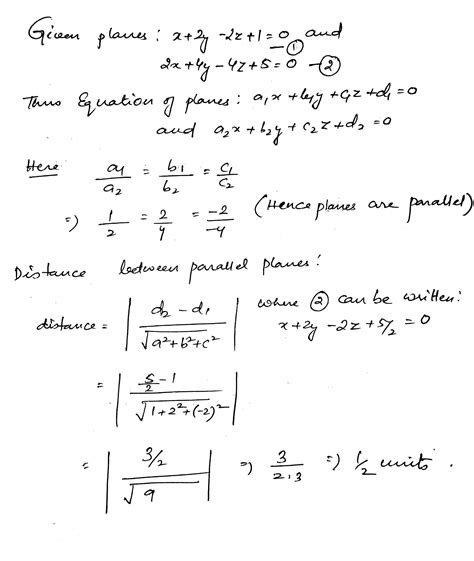 Given planes : x+2y -2z+1=0 —① and
2x+4y-4z+5=0 —②
Thus Equation of planes : a₁x+b₁y+c₁z+d₁=0
and a₂x+b₂y+c₂z+d₂=0
Here a₁/a₂ = b₁/b₂ = c₁/c₂
=) 1/2 = 2/4 = -2/-4 (Hence planes are parallel)
Distance between parallel planes :
distance = | d₂ - d₁ / √a²+b²+c² | where ② can be written:
x+2y -2z+5/2 =0
= | 5/2 - 1 / √1+2²+(-2)² |
= | 3/2 / √9 | =) 3/2.3 =) 1/2 units .